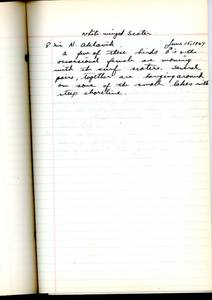 White-winged Scoter
8 mi N. Aklavik June 15, 1947
a few of these birds ♂'s with
occasional female are moving
with the surf scoters. Several
pairs, together are hanging around
on some of the small lakes with
steep shoreline.